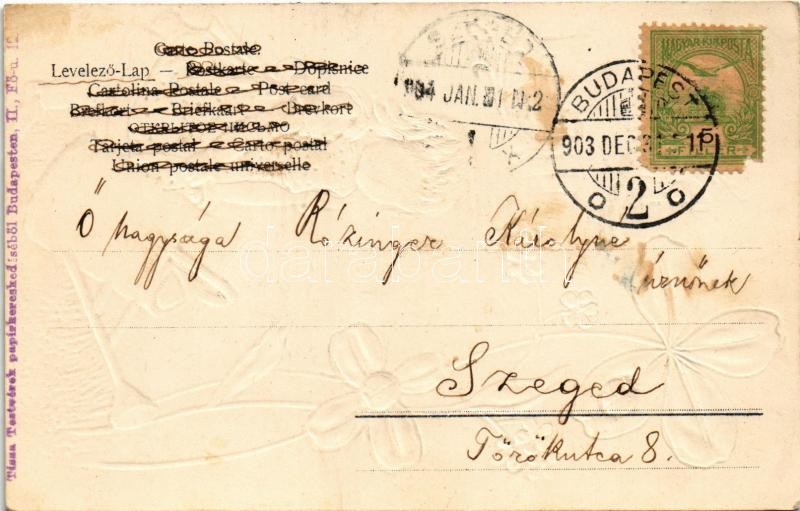 Carte Postale.
Levelező-Lap — Postkarte — Dopisnice
Cartolina Postale — Post-card
Brefkort — Briefkaart — Brevkort
Tarjeta postal — Carto postal
Union postale universelle
SZEGED
904 JAN. 1
MAGYAR KIR. POSTA
BUDAPEST
903 DEC. 31
2
Ő nagysága Rózinger Károlyné
úrnőnek
Szeged
Törökutca 8.
Tissa Testvérek papirkereskedéséből Budapesten, II., Fő-u. 12
darabanth.com